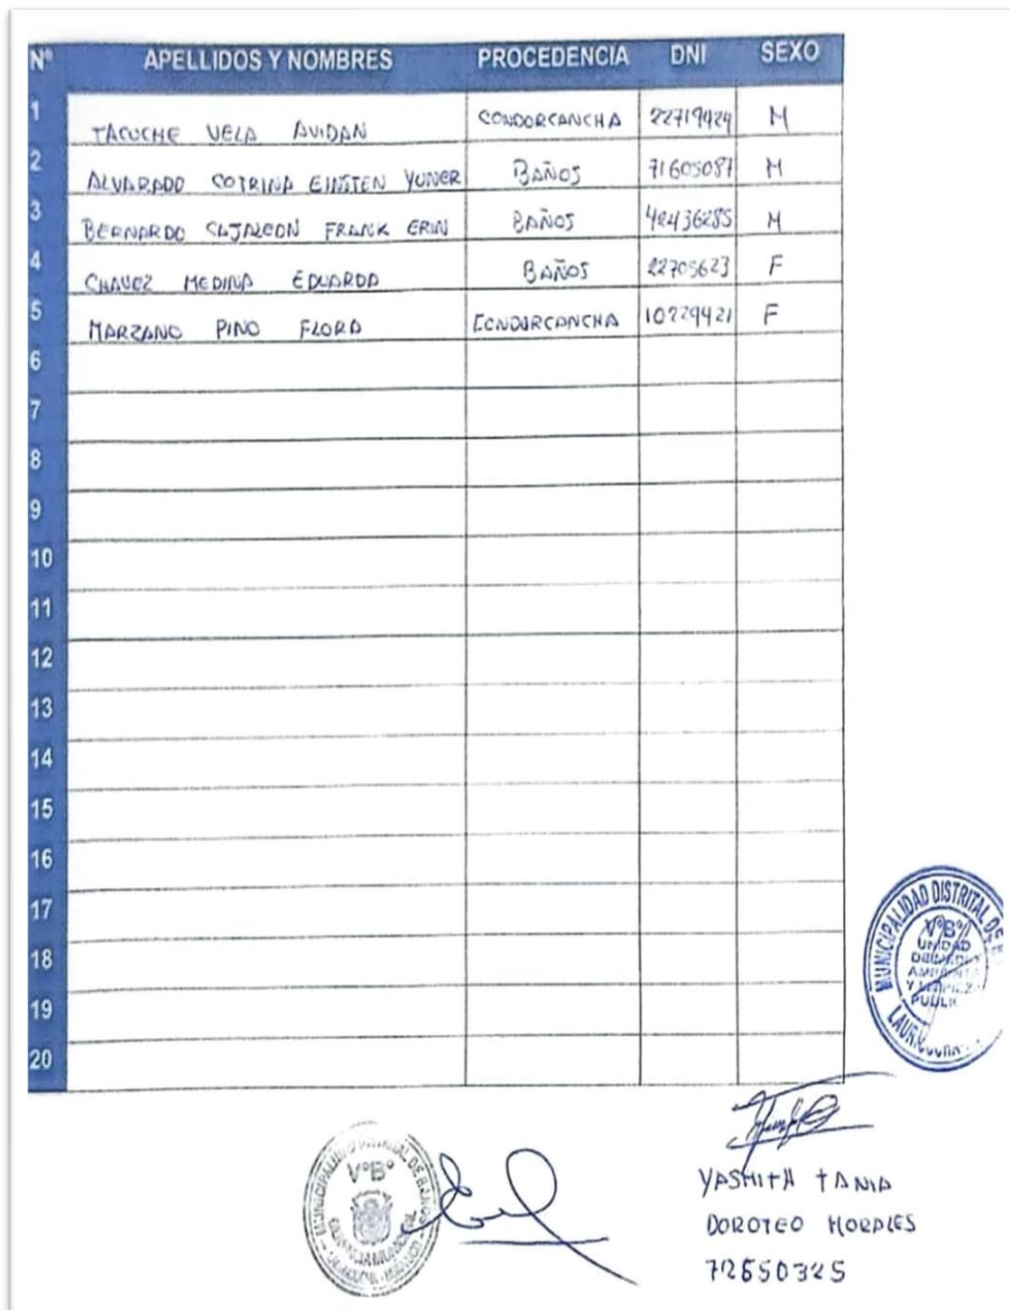 Nº APELLIDOS Y NOMBRES PROCEDENCIA DNI SEXO
1 TACUCHE VELA AVIDAN CONDORCANCHA 22719424 M
2 ALVARADO COTRINA EINSTEN YUNER BAÑOS 71605087 M
3 BERNARDO CAJALEON FRANK ERIN BAÑOS 42436285 M
4 CHAVEZ MEDINA EDUARDA BAÑOS 22705623 F
5 MARZANO PINO FLORA CONDORCANCHA 10229421 F
6
7
8
9
10
11
12
13
14
15
16
17
18
19
20
MUNICIPALIDAD DISTRITAL DE
VºBº
UNIDAD
Y LIMPIEZA
MUNICIPALIDAD DISTRITAL DE BAÑOS
VºBº
GERENCIA MUNICIPAL
YASMITH TANIA
DOROTEO MORALES
72650325